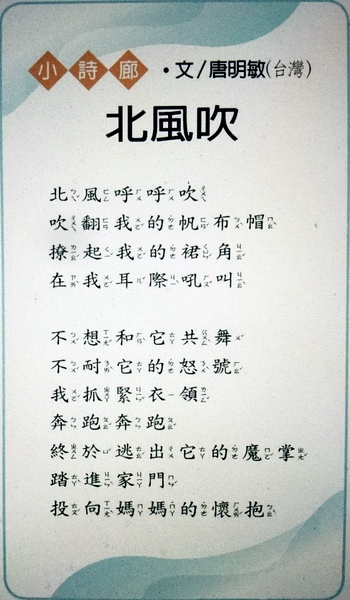 小詩廊 ・文/唐明敏(台灣)
北風吹
北風呼呼吹
吹翻我的帆布帽
撩起我的裙角
在我耳際吼叫
不想和它共舞
不耐它的怒號
我抓緊衣領
奔跑奔跑
終於逃出它的魔掌
踏進家門
投向媽媽的懷抱